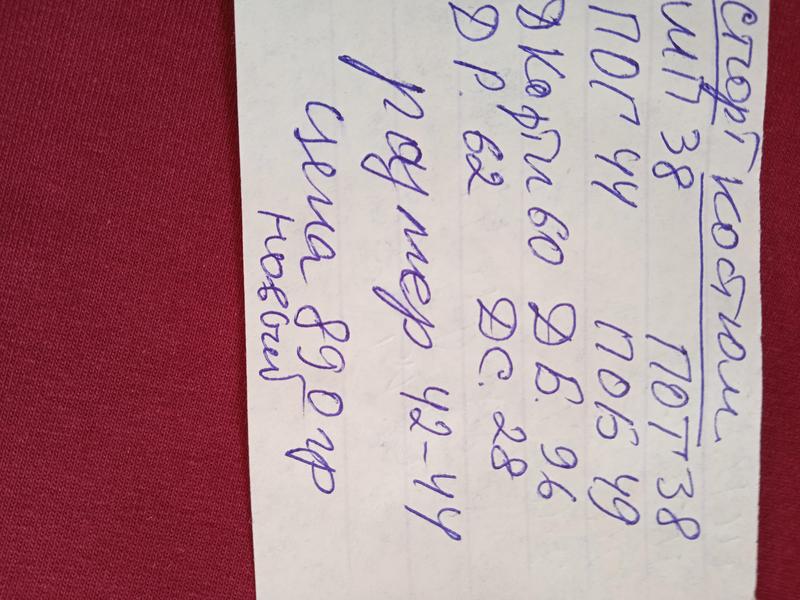 спорт костюм
ШП 38 ПОТ 38
ПОГ 44 ПОБ 49
Д Кофти 60 Д Б. 96
Д Р. 62 ДС. 28
размер 42-44
цена 890 гр
новый